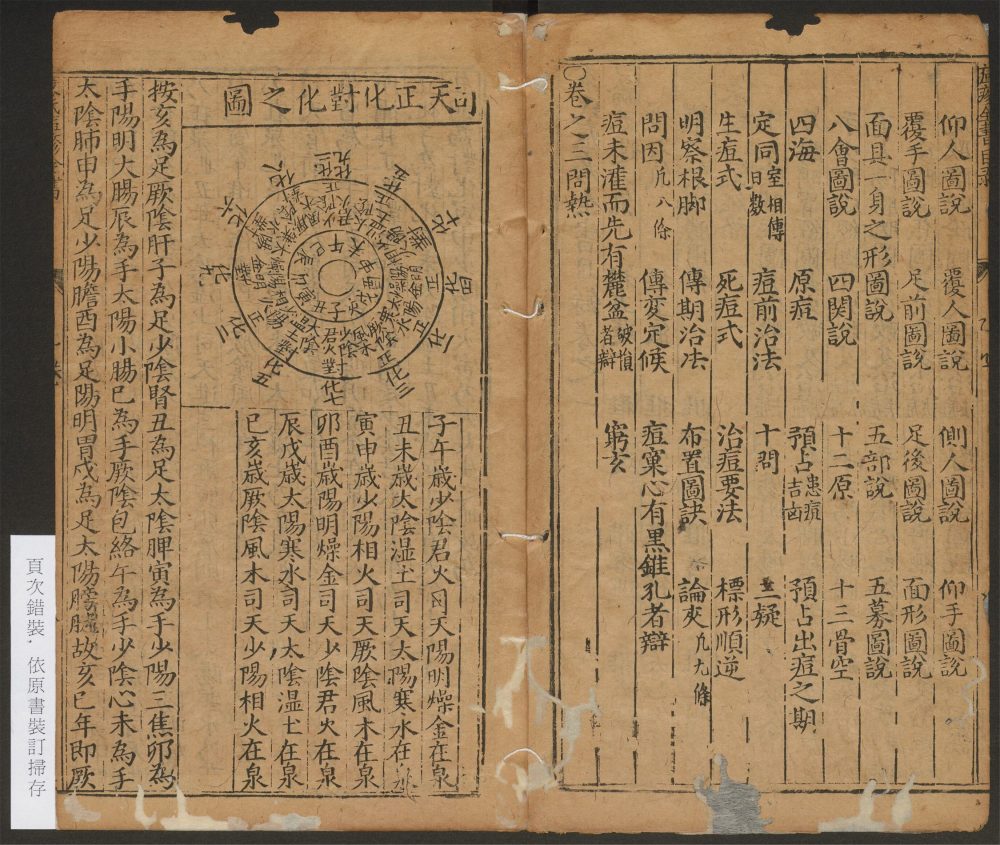 仰人圖說 覆人圖說 側人圖說 仰手圖說
覆手圖說 足前圖說 足後圖說 面形圖說
面具一身之形圖說 五部說 五募圖說
八會圖說 四関說 十二原 十三骨空
四海 原痘 預占患痘吉凶 預占出痘之期
定同室相傳日數 痘前治法 十問 三疑
生痘式 死痘式 治痘要法 標形順逆
明察根脚 傳期治法 布置圖訣 論夾凡九條
問因凡八條 傳変定候 痘窠心有黑錐孔者辯
痘未灌而先有麓盆破損者辯 窮亥
○卷之三問熱
司天正化對化之圖
子午歲少陰君火司天陽明燥金在泉
丑未歲太陰湿土司天太陽寒水在泉
寅申歲少陽相火司天厥陰風木在泉
卯酉歲陽明燥金司天少陰君火在泉
辰戌歲太陽寒水司天太陰湿土在泉
巳亥歲厥陰風木司天少陽相火在泉
按亥為足厥陰肝子為足少陰腎丑為足太陰脾寅為手少陽三焦卯為
手陽明大腸辰為手太陽小腸巳為手厥陰包絡午為手少陰心未為手
太陰肺申為足少陽膽酉為足陽明胃戌為足太陽膀胱故亥巳年即厥
頁次錯裝，依原書裝訂掃存